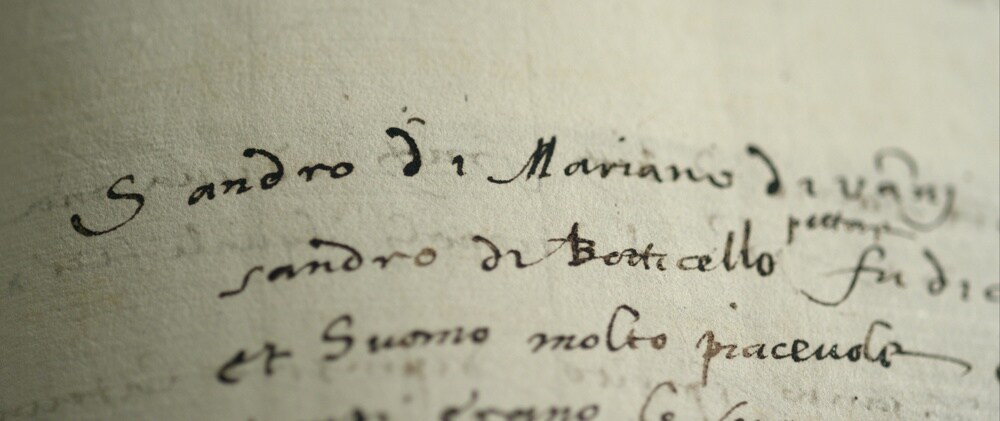 Sandro di Mariano di vanj
sandro di Botticello pittore fu di
et Suomo molto piaceuole
erano